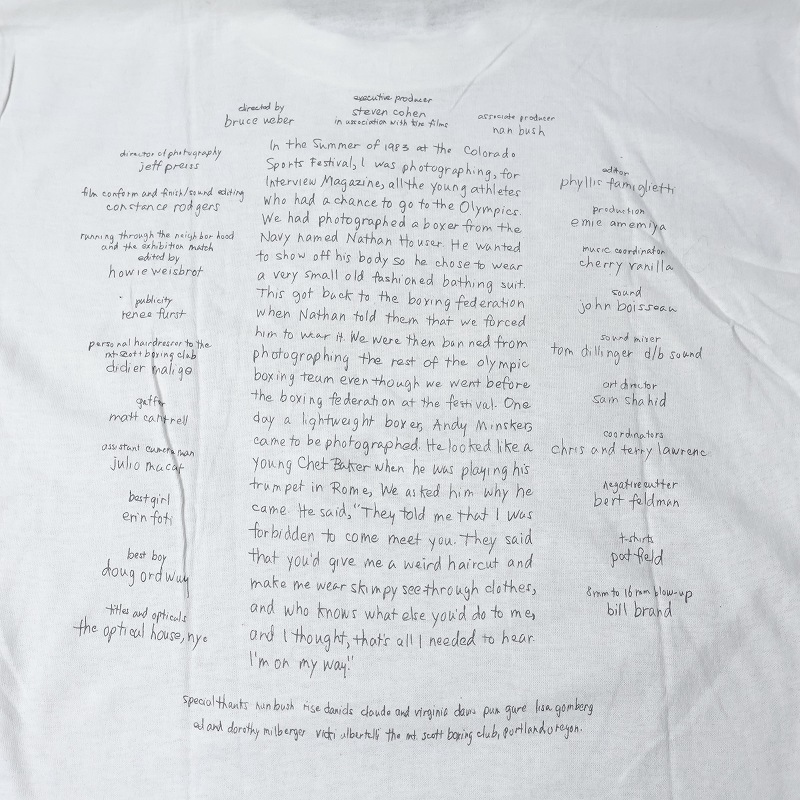 directed by
bruce weber
executive producer
steven cohen
in association with films
associate producer
nan bush
director of photography
jeff preiss
film conform and finish/sound editing
constance rodgers
running through the neighborhood
and the exhibition match
edited by
howie weisbrot
publicity
renee furst
personal hairdresser to the
mt. scott boxing club
didier malige
gaffer
matt cantrell
assistant cameraman
julio macat
best girl
erin foti
best boy
doug ordway
titles and opticals
the optical house, nyc
In the Summer of 1983 at the Colorado
Sports Festival, I was photographing, for
Interview Magazine, all the young athletes
who had a chance to go to the Olympics.
We had photographed a boxer from the
Navy named Nathan Houser. He wanted
to show off his body so he chose to wear
a very small old fashioned bathing suit.
This got back to the boxing federation
when Nathan told them that we forced
him to wear it. We were then banned from
photographing the rest of the olympic
boxing team even though we went before
the boxing federation at the festival. One
day a lightweight boxer, Andy Minsker,
came to be photographed. He looked like a
young Chet Baker when he was playing his
trumpet in Rome, We asked him why he
came. He said, "They told me that I was
forbidden to come meet you. They said
that you'd give me a weird haircut and
make me wear skimpy see through clothes,
and who knows what else you'd do to me,
and I thought, that's all I needed to hear.
I'm on my way!"
editor
phyllis famiglietti
production
emie amemiya
music coordinator
cherry vanilla
sound
john boisseau
sound mixer
tom dillinger d/b sound
art director
sam shahid
coordinators
chris and terry lawrenc
negative cutter
bert feldman
t-shirts
pat field
8mm to 16mm blow-up
bill brand
special thanks nan bush rise daniels claude and virginia lisa gomberg
ed and dorothy milberger vicki albertelli the mt. scott boxing club, portland oregon.